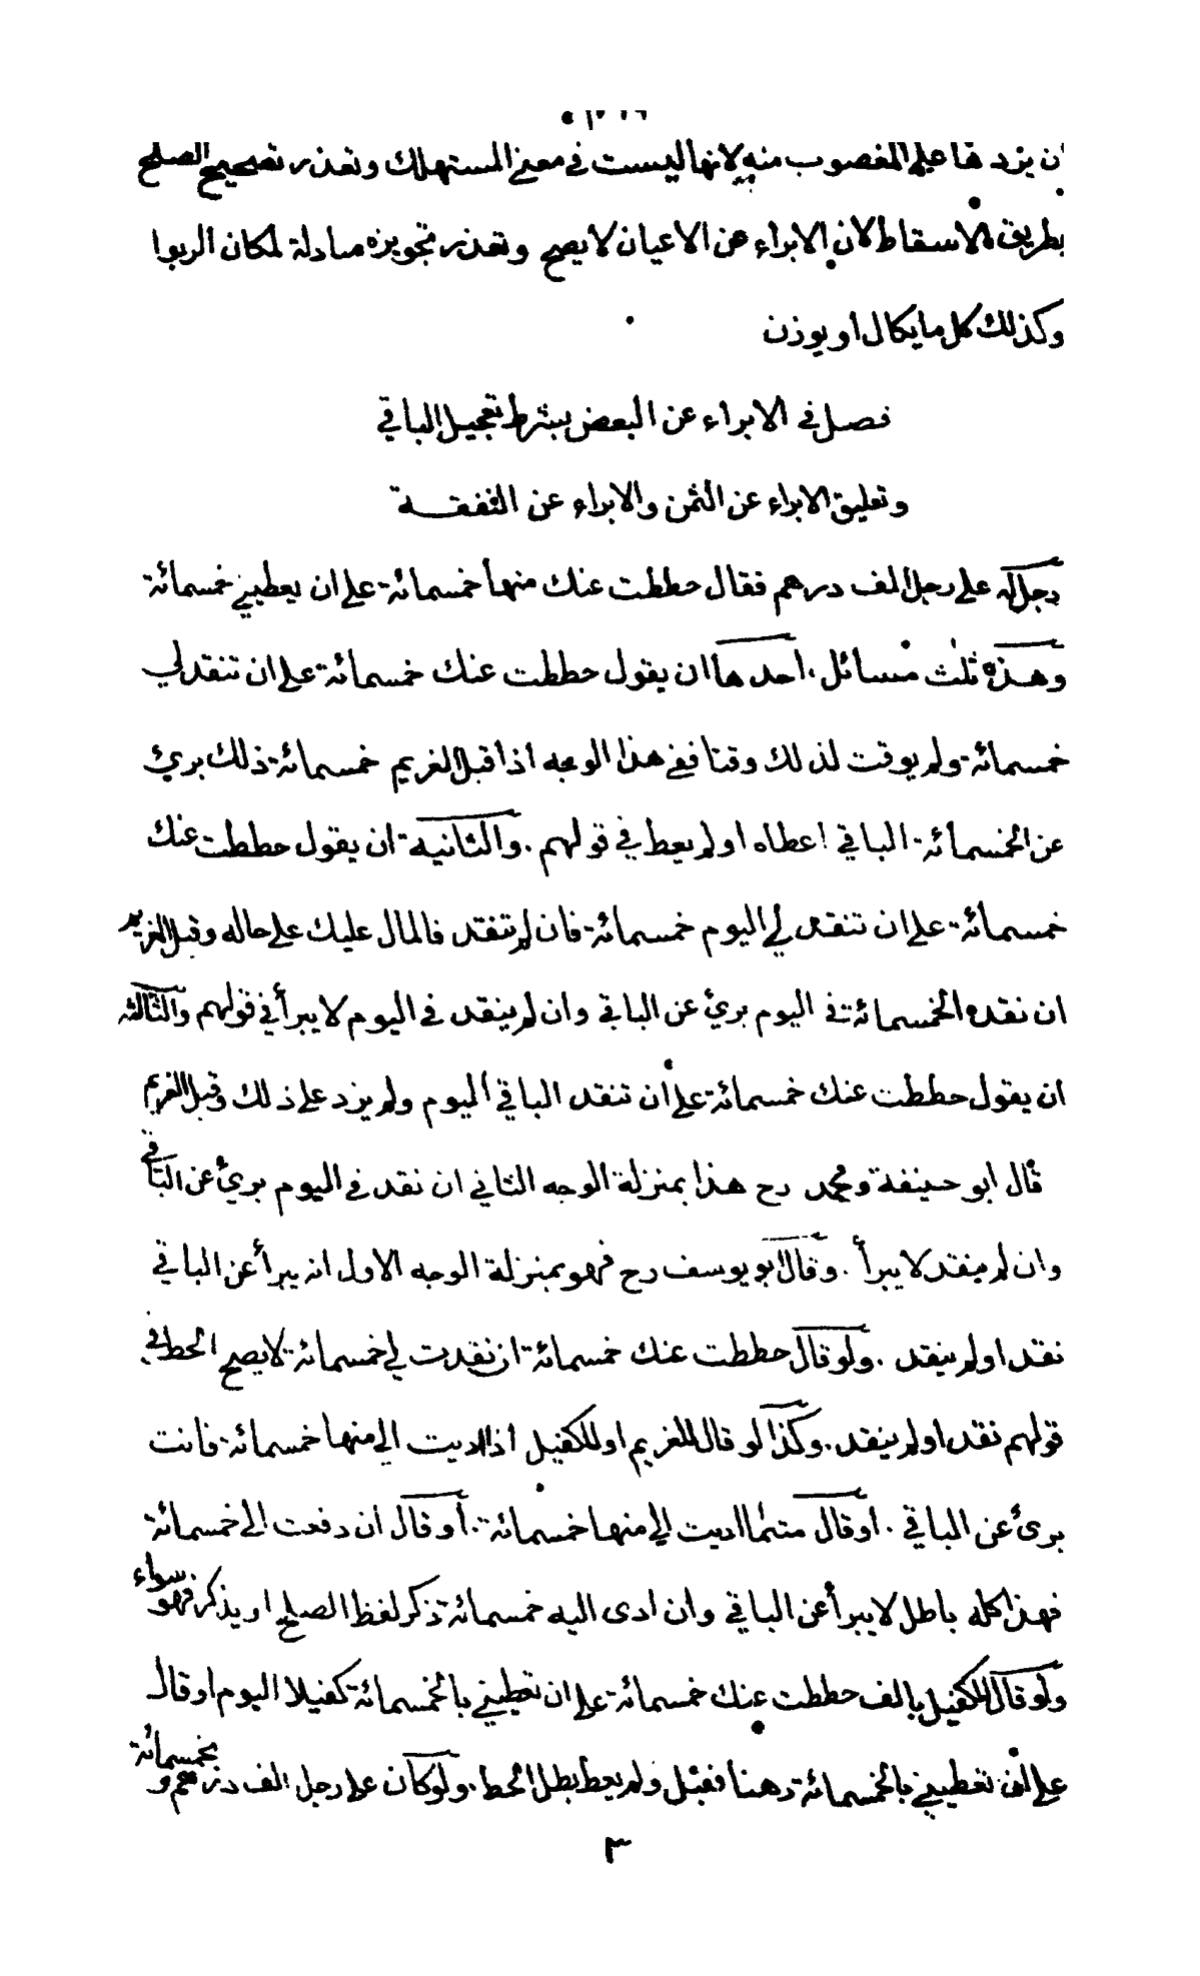 ان يرد ها على المغصوب منه لانها ليست في معنى المستهلك وتعذر تصحيح الصلح
بطريق الاسقاط لان الابراء عن الاعيان لا يصح وتعذر تجويزه مبادلة لمكان الربوا
وكذلك كل ما يكال او يوزن
فصل في الابراء عن البعض بشرط تعجيل الباقي
وتعليق الابراء عن الثمن والابراء عن النفقة
رجل له على رجل الف درهم فقال حططت عنك منها خمسمائة على ان يعطيني خمسمائة
وهذه ثلث مسائل . احدها ان يقول حططت عنك خمسمائة على ان تنقد لي
خمسمائة ولم يوقت لذلك وقتا ففي هذا الوجه اذا قبل الغريم خمسمائة ذلك برئ
عن الخمسمائة الباقي اعطاه او لم يعط في قولهم . والثانية ان يقول حططت عنك
خمسمائة على ان تنقد لي اليوم خمسمائة فان لم تنقد فالمال عليك على حاله وقبل الغريم
ان نقده الخمسمائة في اليوم برئ عن الباقي وان لم ينقد في اليوم لا يبرأ في قولهم والثالثة
ان يقول حططت عنك خمسمائة على ان تنقد الباقي اليوم ولم يزد على ذلك وقبل الغريم
قال ابو حنيفة ومحمد رح هذا بمنزلة الوجه الثاني ان نقد في اليوم برئ عن الباقي
وان لم ينقد لا يبرأ . وقال ابو يوسف رح فهو بمنزلة الوجه الاول انه يبرأ عن الباقي
نقد او لم ينقد . ولو قال حططت عنك خمسمائة ان نقدت لي خمسمائة لا يصح الحط في
قولهم نقد او لم ينقد . وكذا لو قال للغريم او للكفيل اذا اديت الي منها خمسمائة فانت
برئ عن الباقي . او قال متىٰ ما اديت الي منها خمسمائة . او قال ان دفعت الي خمسمائة
فهذا كله باطل لا يبرأ عن الباقي وان ادى اليه خمسمائة ذكر لفظ الصلح او يذكر فهو سواء
ولو قال للكفيل بالف حططت عنك خمسمائة على ان تعطيني بالخمسمائة كفيلا اليوم او قال
على ان تعطيني بالخمسمائة رهنا فقبل ولم يعط بطل الحط . ولو كان على رجل الف درهم و بخمسمائة
٣